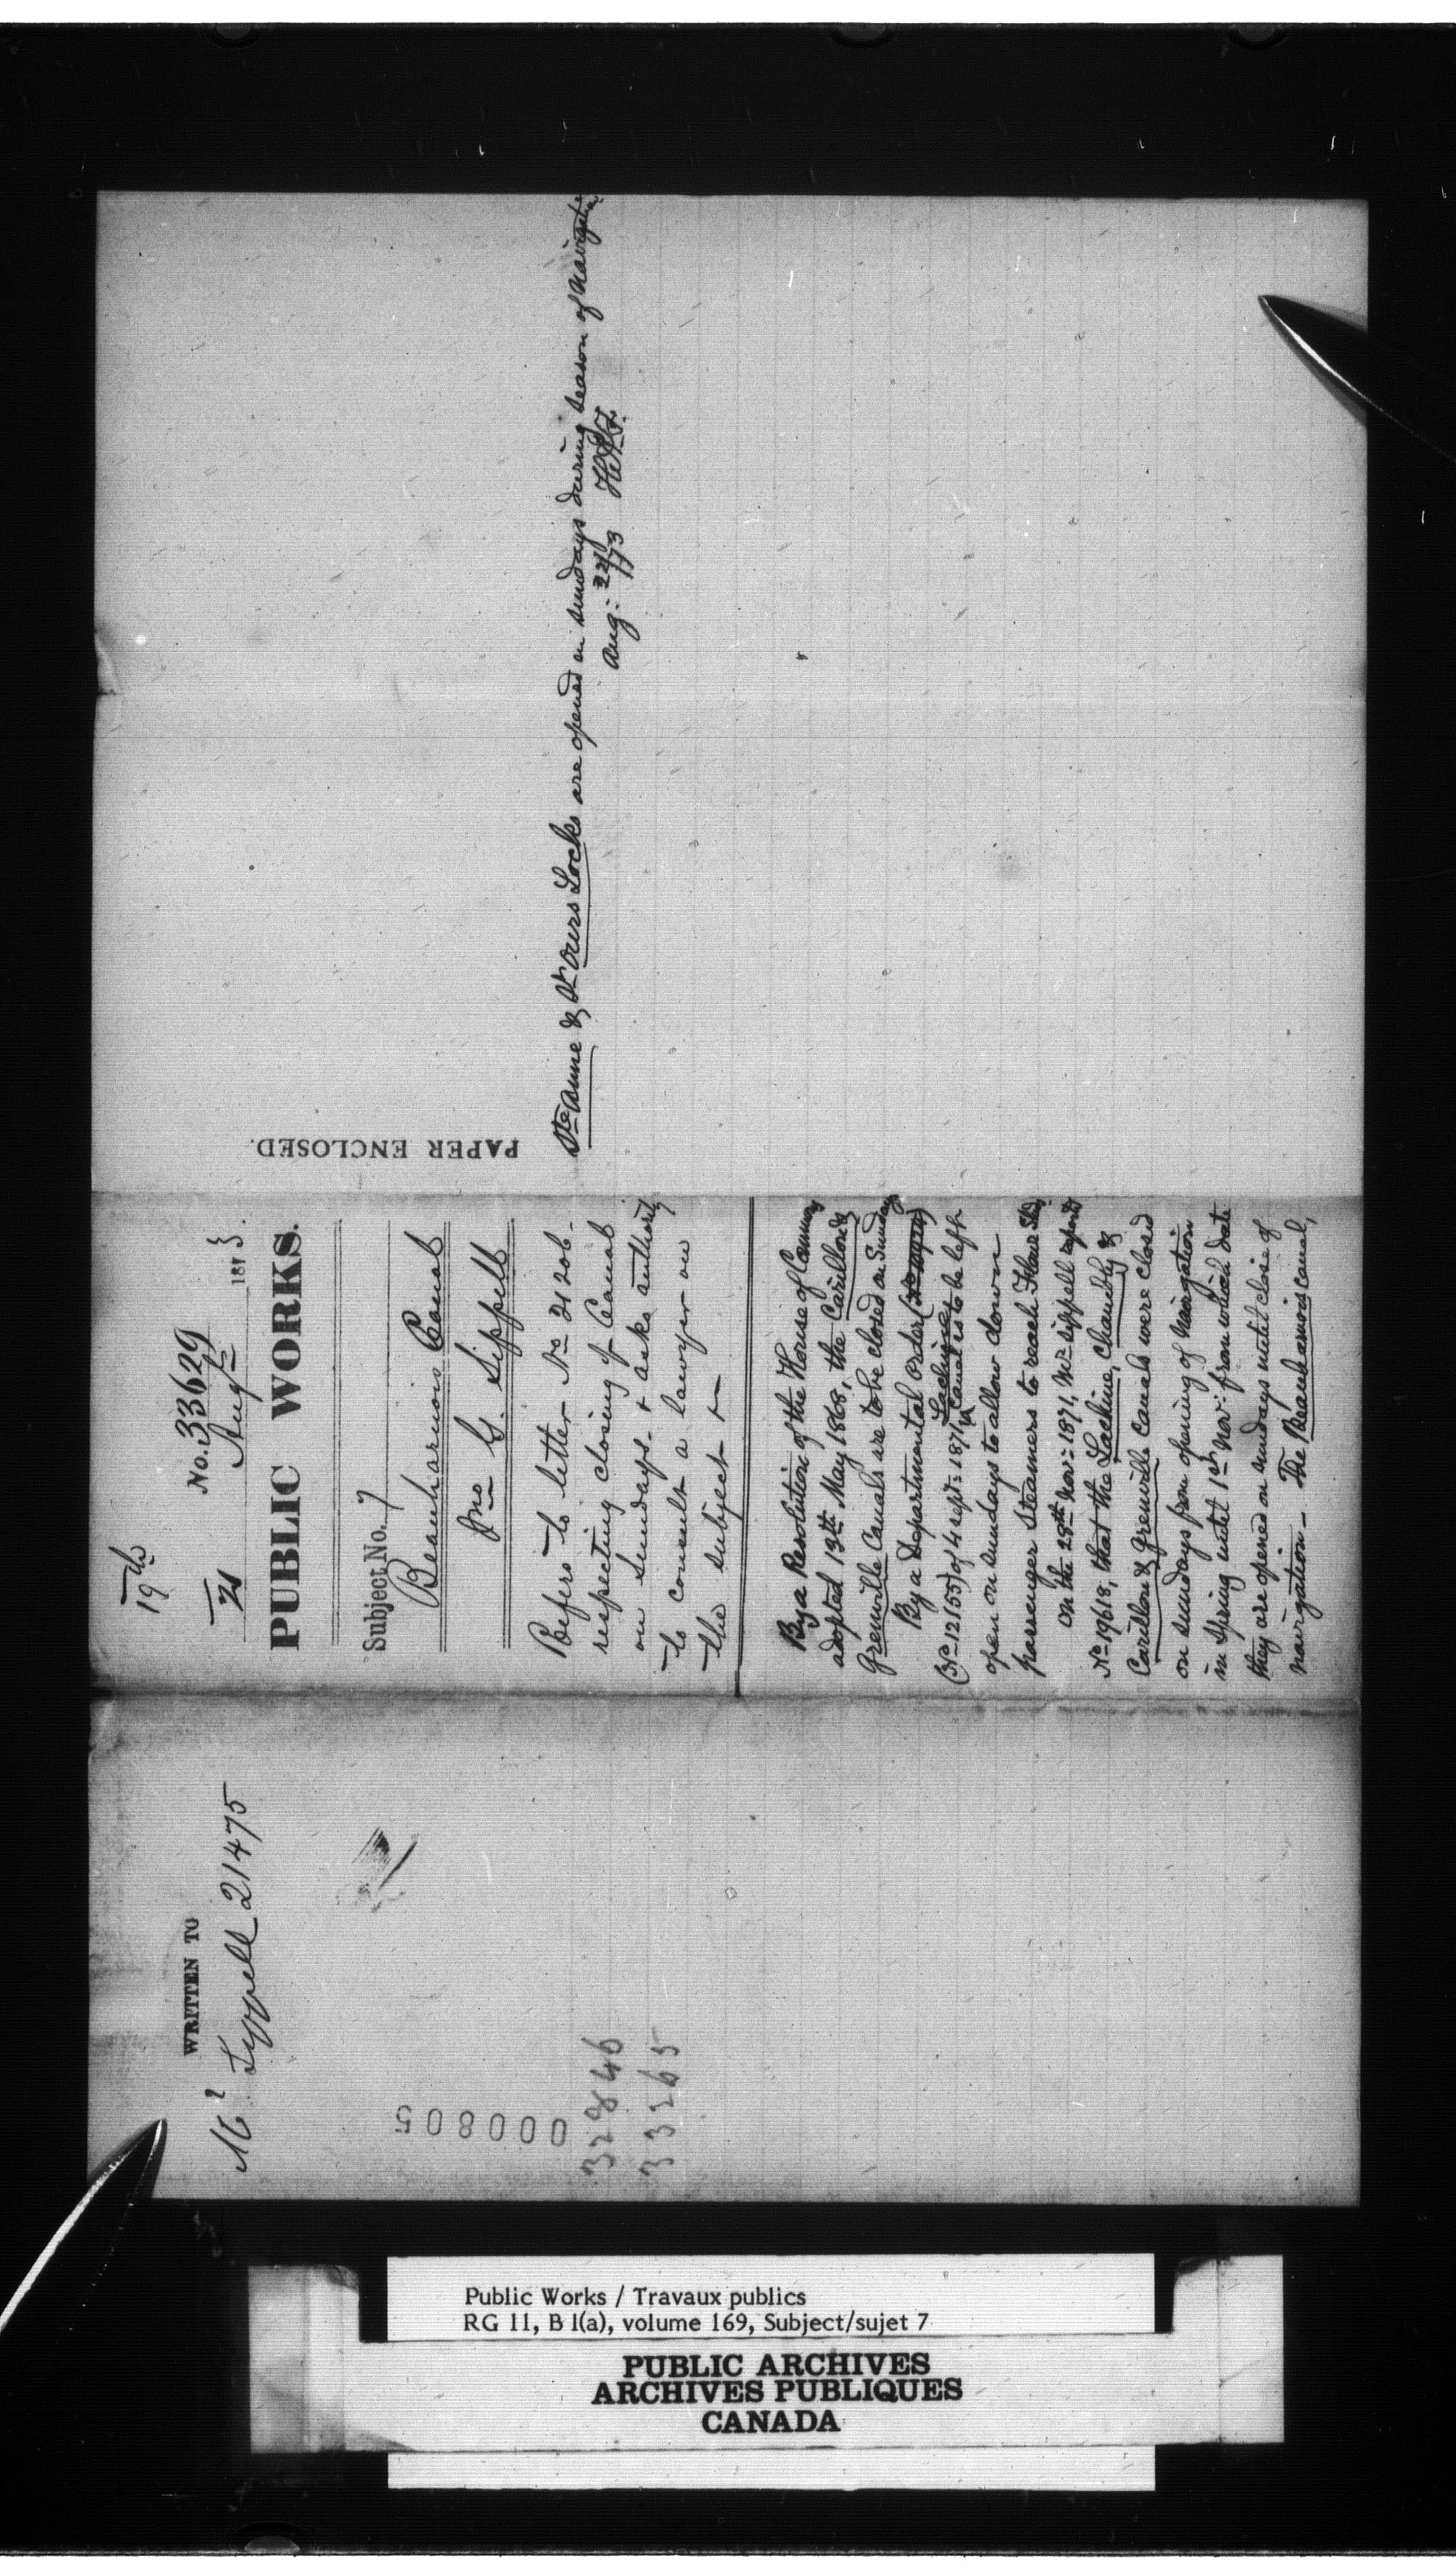 WRITTEN TO
Mr Sippell 21475
000805
32846
33265
19th
No. 33629
21 Augt 1873.
PUBLIC WORKS.
Subject No. 7
Beauharnois Canal
Jno G. Sippell
Refers to letter No 21206-
respecting closing of Canal
on Sundays. & asks authority
to consult a lawyer on
the subject —
By a Resolution of the House of Commons
adopted 13th May 1868, the Carillon &
Grenville Canals are to be closed on Sundays
By a Departmental order
(No 12155) of 4 Sept: 1871, Lachine Canal is to be left
open on Sundays to allow down
passenger Steamers to reach
On the 28th Nov: 1871, Mr Sippell reports
No 19618, that the Lachine, Chambly &
Carillon & Grenville Canals were closed
on Sundays from opening of Navigation
in Spring until 1st Nov: from which date
they are opened on Sundays until close of
navigation — The Beauharnois Canal,
PAPER ENCLOSED.
Ste Anne & St Ours Locks are opened on Sundays during season of Navigation
Aug: 22/73
Public Works / Travaux publics
RG 11, B 1(a), volume 169, Subject/sujet 7
PUBLIC ARCHIVES
ARCHIVES PUBLIQUES
CANADA